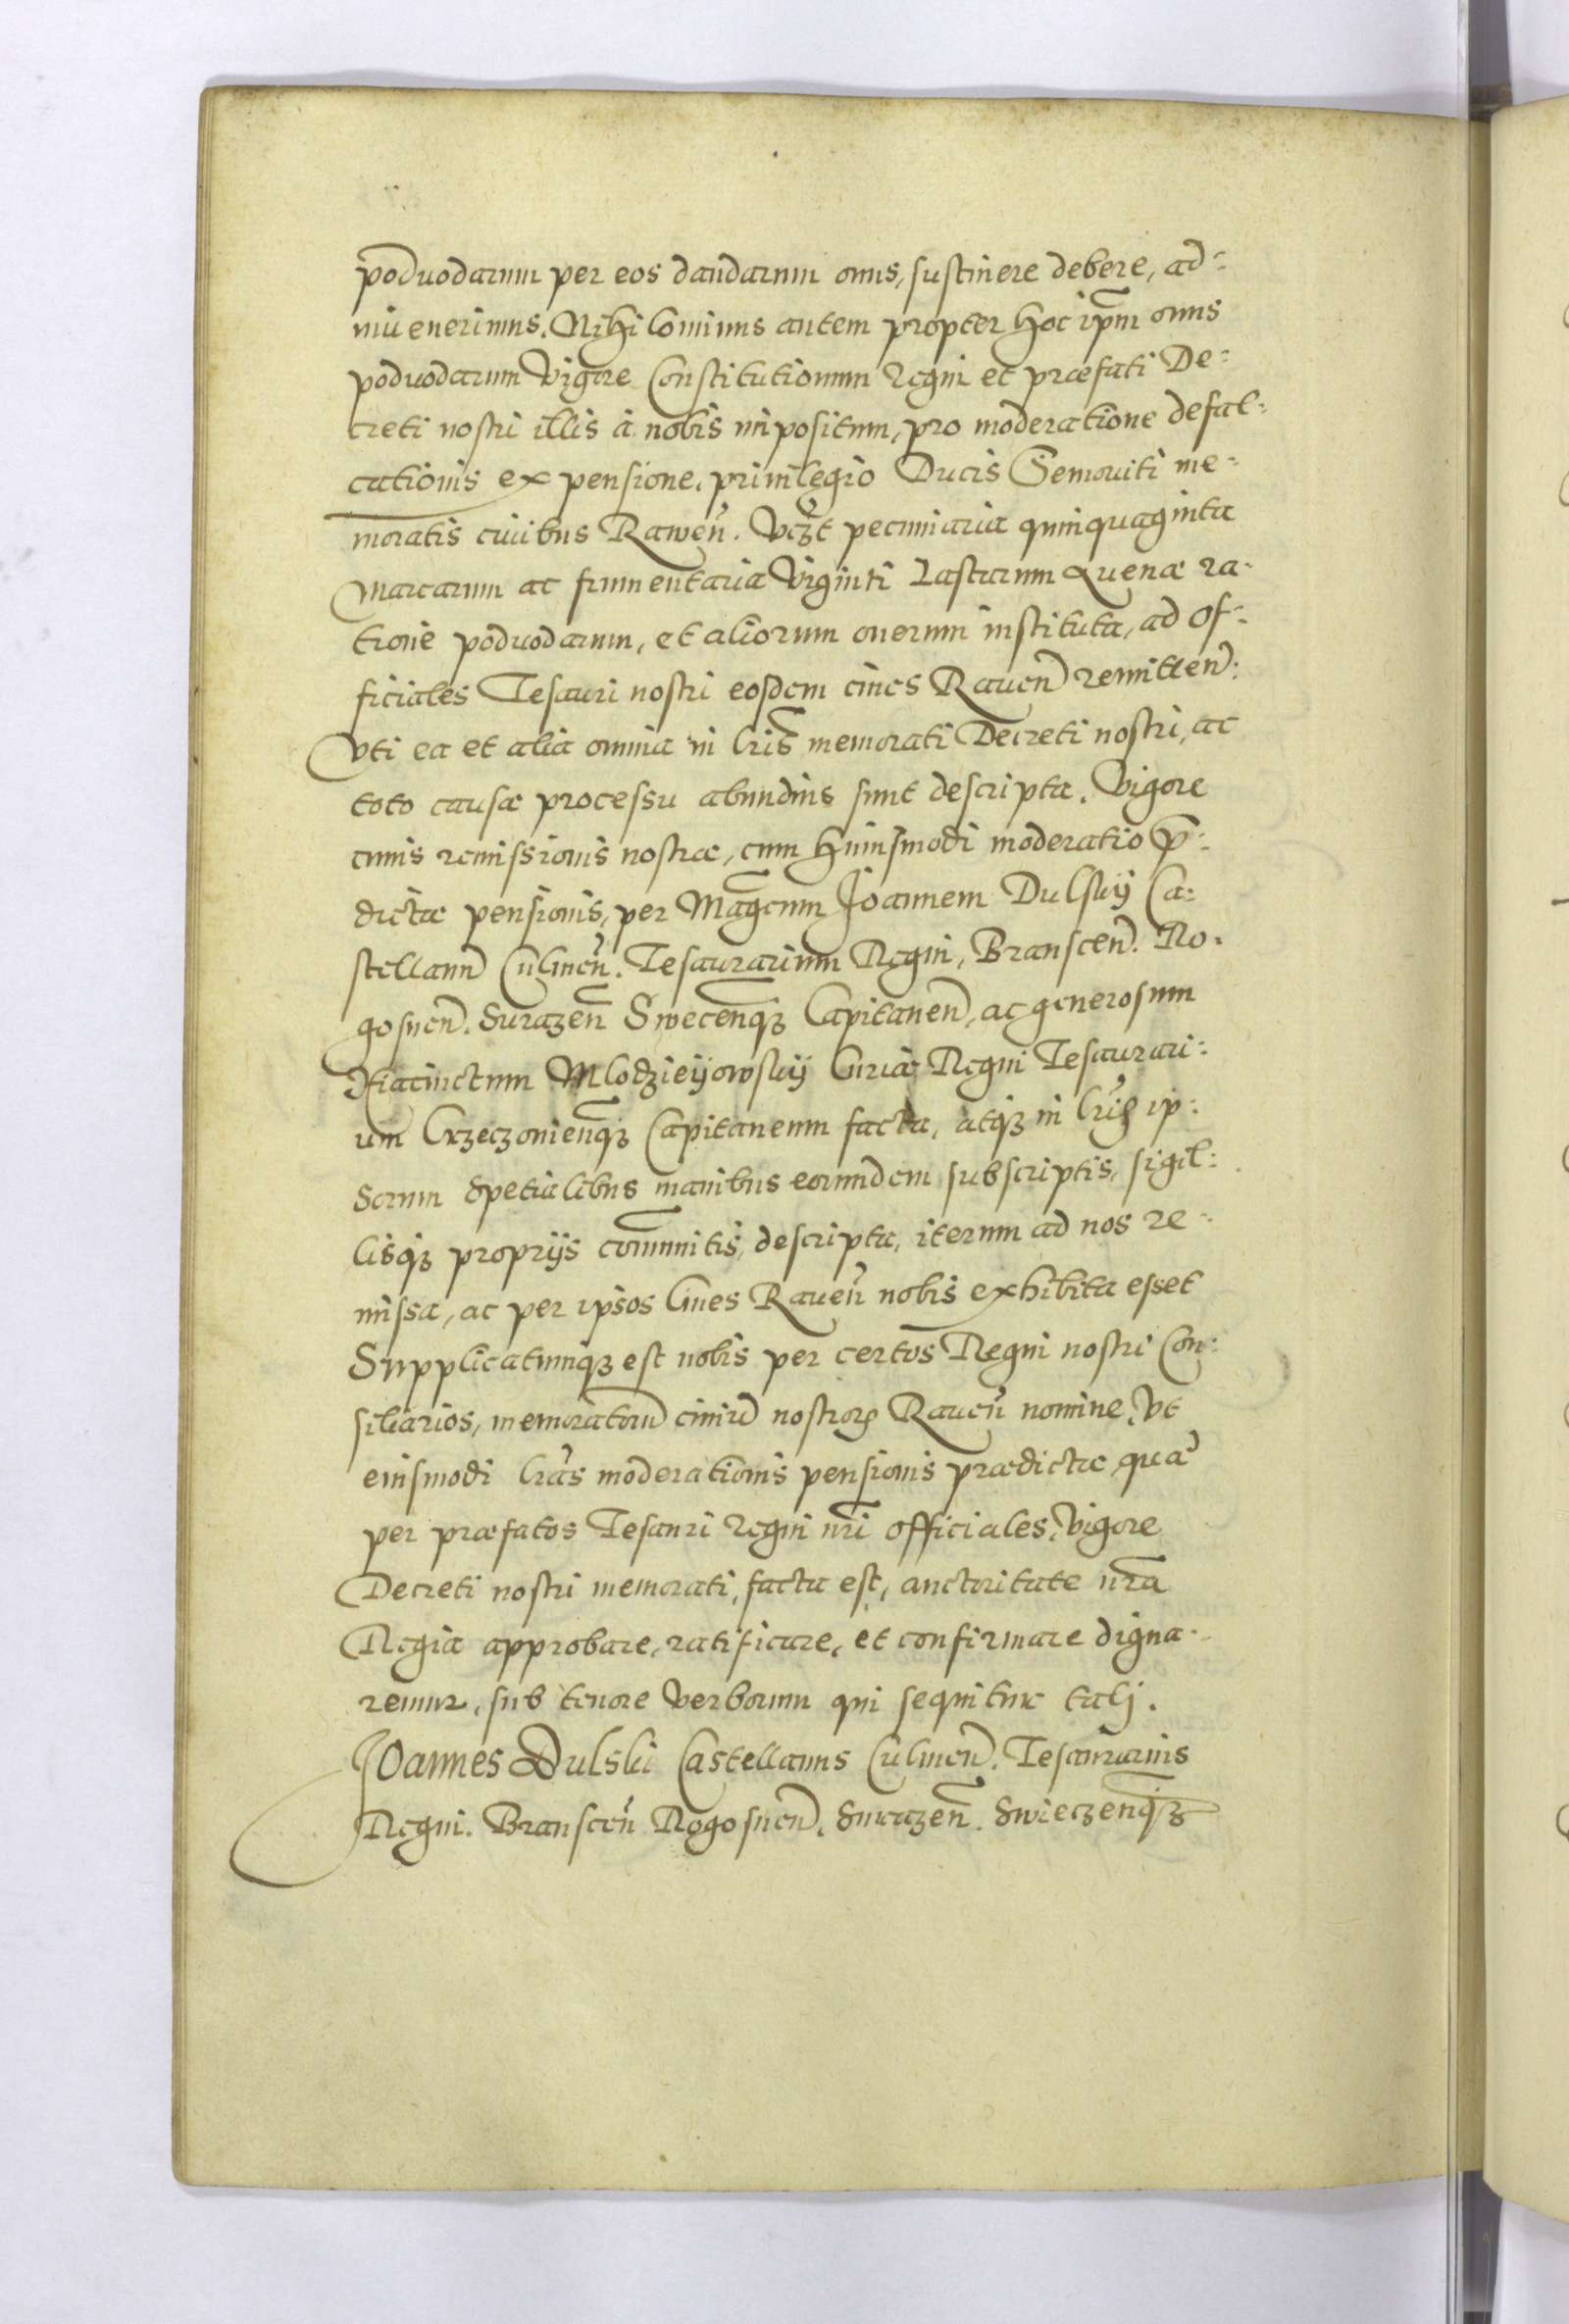 podvodarum per eos dandarum onus, sustinere debere, ad-
invenerimus. Nihilominus autem propter hoc ipm̃ onus
podvodarum Vigore Constitutionum Regni et præfati De-
creti nostri illis à nobis impositum, pro moderatione defal-
cationis ex pensione, privilegio Ducis Semoviti me-
moratis civibus Raweñ. Vczt pecuniaria quinquaginta
Marcarum ac frumentaria Viginti Lasturum Avenæ ra-
tione podvodarum, et aliorum onerum instituta, ad of-
ficiales Tesauri nostri eosdem cives Raveñ remitteñ:
Vti ea et alia omnia in lris̃ memorati Decreti nostri, ac
toto causæ processu abundius sunt descripta. Vigore
cuius remissionis nostræ, cum huiusmodi moderatio p̃-
dictæ pensionis, per Mag̃cum Joannem Dulsky Ca-
stellanũ Culmeñ. Tesaurarium Regni, Bransceñ. Ro-
gosneñ. Surazeñ Sweceñqz Capitaneũ, ac generosum
Hiacinctum Mlodzieyowsky Curiæ Regni Tesaurari-
um Crzeczonieñqz Capitaneum facta, atqz in lris̃ ip-
sorum spetialibus manibus eorundem subscriptis, sigil-
lisqz proprijs com̃unitis, descripta, iterum ad nos re-
missa, ac per ipsos Cives Raveñ nobis exhibita esset
Supplicatumqz est nobis per certos Regni nostri Con-
siliarios, memoratorũ civiũ nostror̃ Raveñ nomine, Vt
eiusmodi lrãs moderationis pensionis prædictæ, quæ
per præfatos Tesauri Regni nrĩ officiales, Vigore
Decreti nostri memorati, facta est, auctoritate nrã
Regia approbare, ratificare, et confirmare digna-
remur, sub tenore Verborum qui sequitur tali.
Joannes Dulski Castellanus Culmeñ. Tesaurarius
Regni. Bransceñ Rogosneñ. Surazeñ. Swieczeñqz